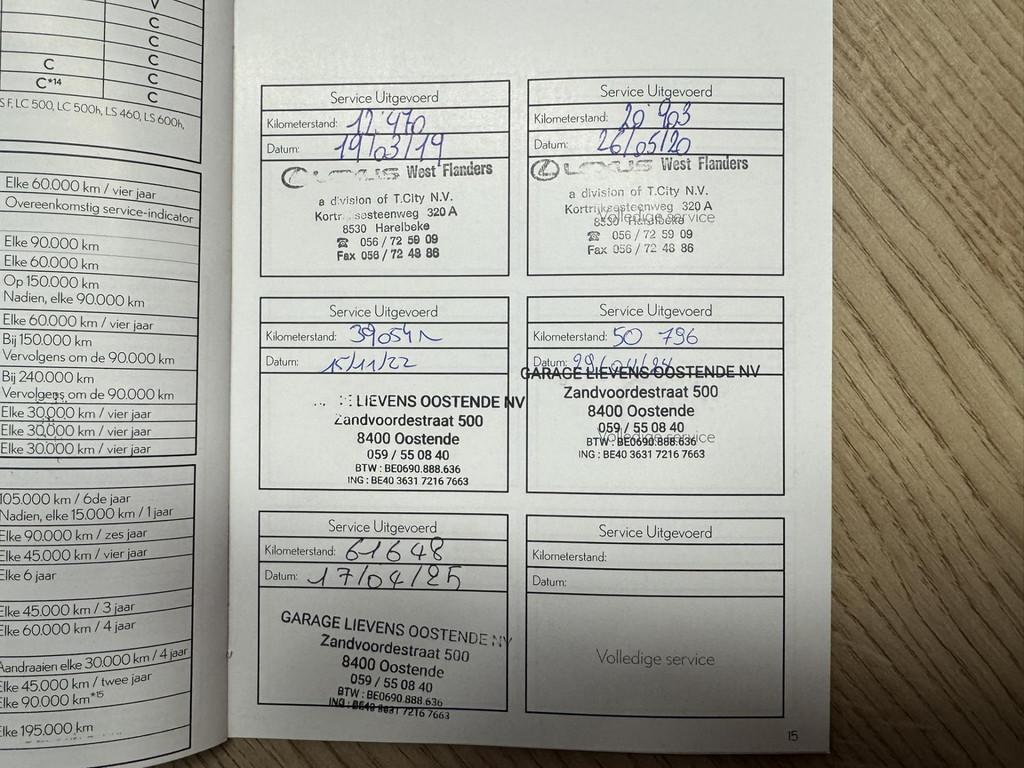 V
C
C
C
C
C
C
C*14
C
S F, LC 500, LC 500h, LS 460, LS 600h,
Elke 60.000 km / vier jaar
Overeenkomstig service-indicator
Elke 90.000 km
Elke 60.000 km
Op 150.000 km
Nadien, elke 90.000 km
Elke 60.000 km / vier jaar
Bij 150.000 km
Vervolgens om de 90.000 km
Bij 240.000 km
Vervolgens om de 90.000 km
Elke 30.000 km / vier jaar
Elke 30.000 km / vier jaar
Elke 30.000 km / vier jaar
105.000 km / 6de jaar
Nadien, elke 15.000 km / 1 jaar
Elke 90.000 km / zes jaar
Elke 45.000 km / vier jaar
Elke 6 jaar
Elke 45.000 km / 3 jaar
Elke 60.000 km / 4 jaar
Aandraaien elke 30.000 km / 4 jaar
Elke 45.000 km / twee jaar
Elke 90.000 km*15
Elke 195.000 km
Service Uitgevoerd
Kilometerstand: 12.470
Datum: 19/03/19
LEXUS West Flanders
a division of T.City N.V.
320 A
8530 Harelbeke
☎ 056 / 72 59 09
Fax 056 / 72 48 86
Service Uitgevoerd
Kilometerstand: 20 903
Datum: 26/05/20
LEXUS West Flanders
a division of T.City N.V.
Kortrijksesteenweg 320 A
Volledige service
8530 Harelbeke
☎ 056 / 72 59 09
Fax 056 / 72 48 86
Service Uitgevoerd
Kilometerstand: 39054
Datum: 15/11/22
LIEVENS OOSTENDE NV
Zandvoordestraat 500
8400 Oostende
059 / 55 08 40
BTW : BE0690.888.636
ING : BE40 3631 7216 7663
Service Uitgevoerd
Kilometerstand: 50 796
Datum:
GARAGE LIEVENS OOSTENDE NV
Zandvoordestraat 500
8400 Oostende
059 / 55 08 40
Volledige service
BTW : BE0690.888.636
ING : BE40 3631 7216 7663
Service Uitgevoerd
Kilometerstand: 61648
Datum: 17/04/25
GARAGE LIEVENS OOSTENDE NV
Zandvoordestraat 500
8400 Oostende
059 / 55 08 40
BTW : BE0690.888.636
ING : BE40 3631 7216 7663
Service Uitgevoerd
Kilometerstand:
Datum:
Volledige service
15